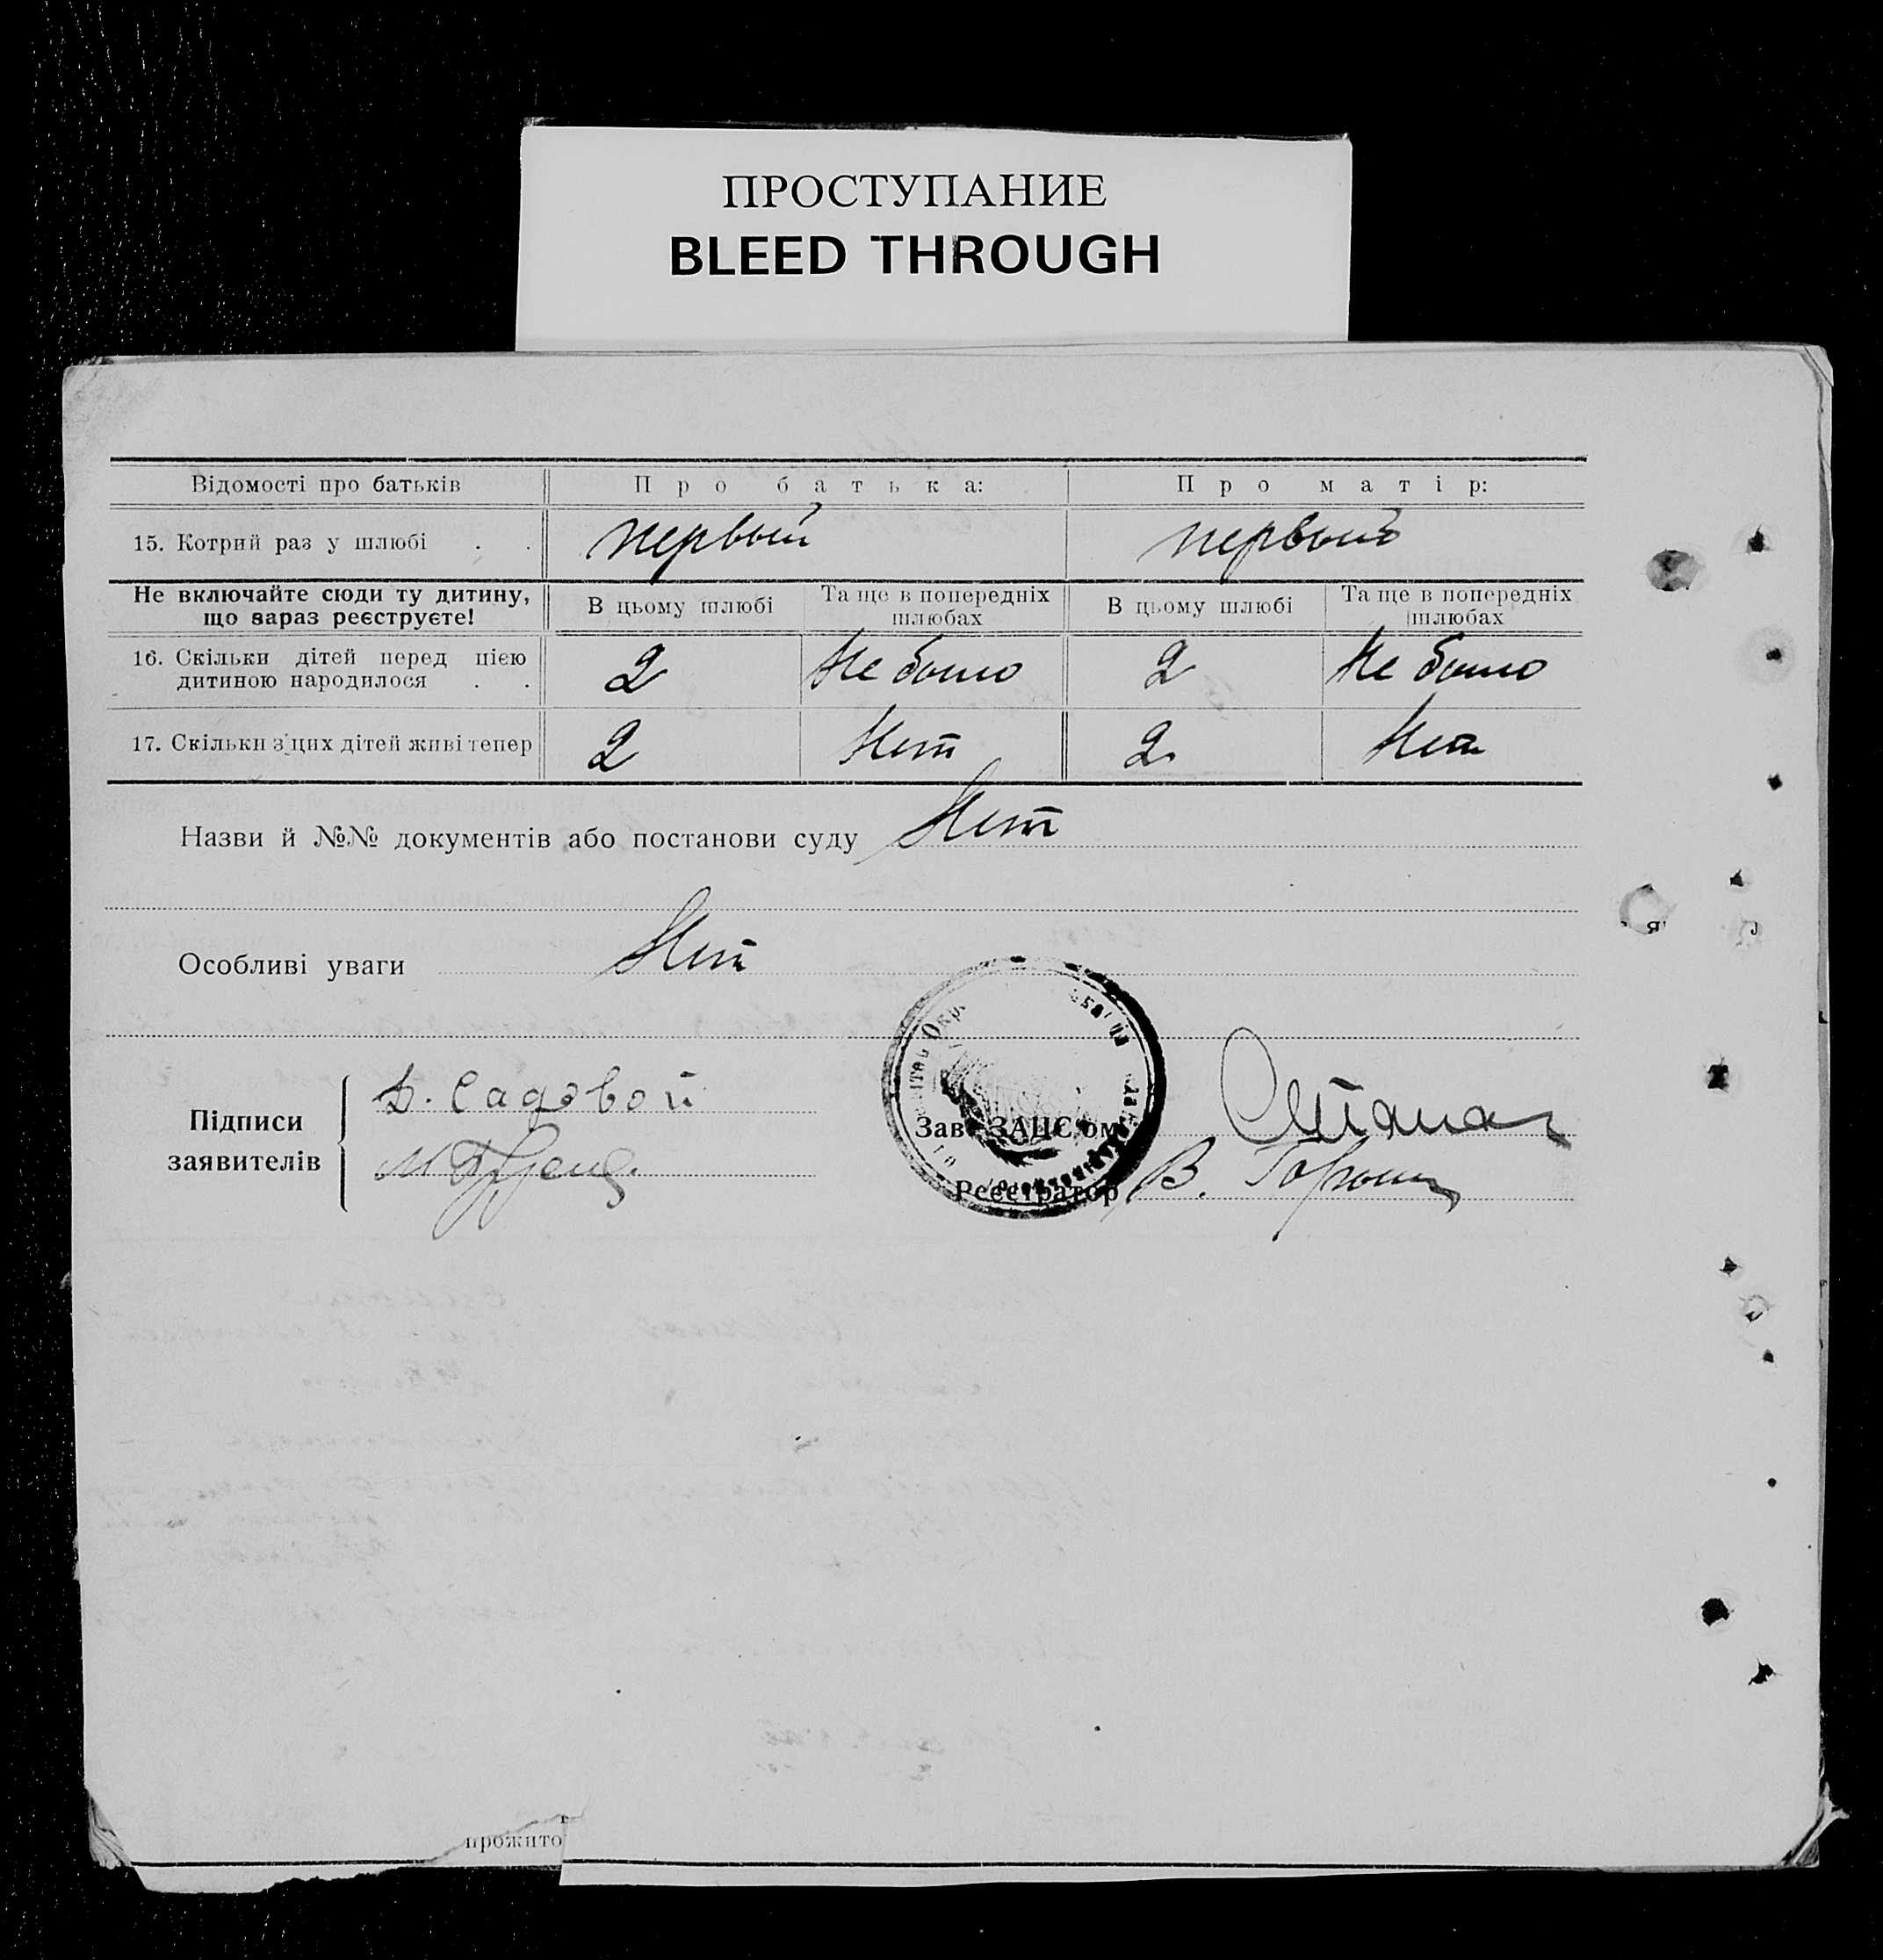 ПРОСТУПАНИЕ
BLEED THROUGH
Відомості про батьків Про батька: Про матір:
15. Котрий раз у шлюбі . . первый первый
Не включайте сюди ту дитину, що зараз реєструєте! В цьому шлюбі Та ще в попередніх шлюбах В цьому шлюбі Та ще в попередніх шлюбах
16. Скільки дітей перед цією дитиною народилося . . 2 Не было 2 Не было
17. Скільки з цих дітей живі тепер 2 Нет 2 Нет
Назви й №№ документів або постанови суду Нет
Особливі уваги Нет
Підписи заявителів
Д. Садовой
Зав. ЗАЦС'ом
Реєстратор В.
прожито